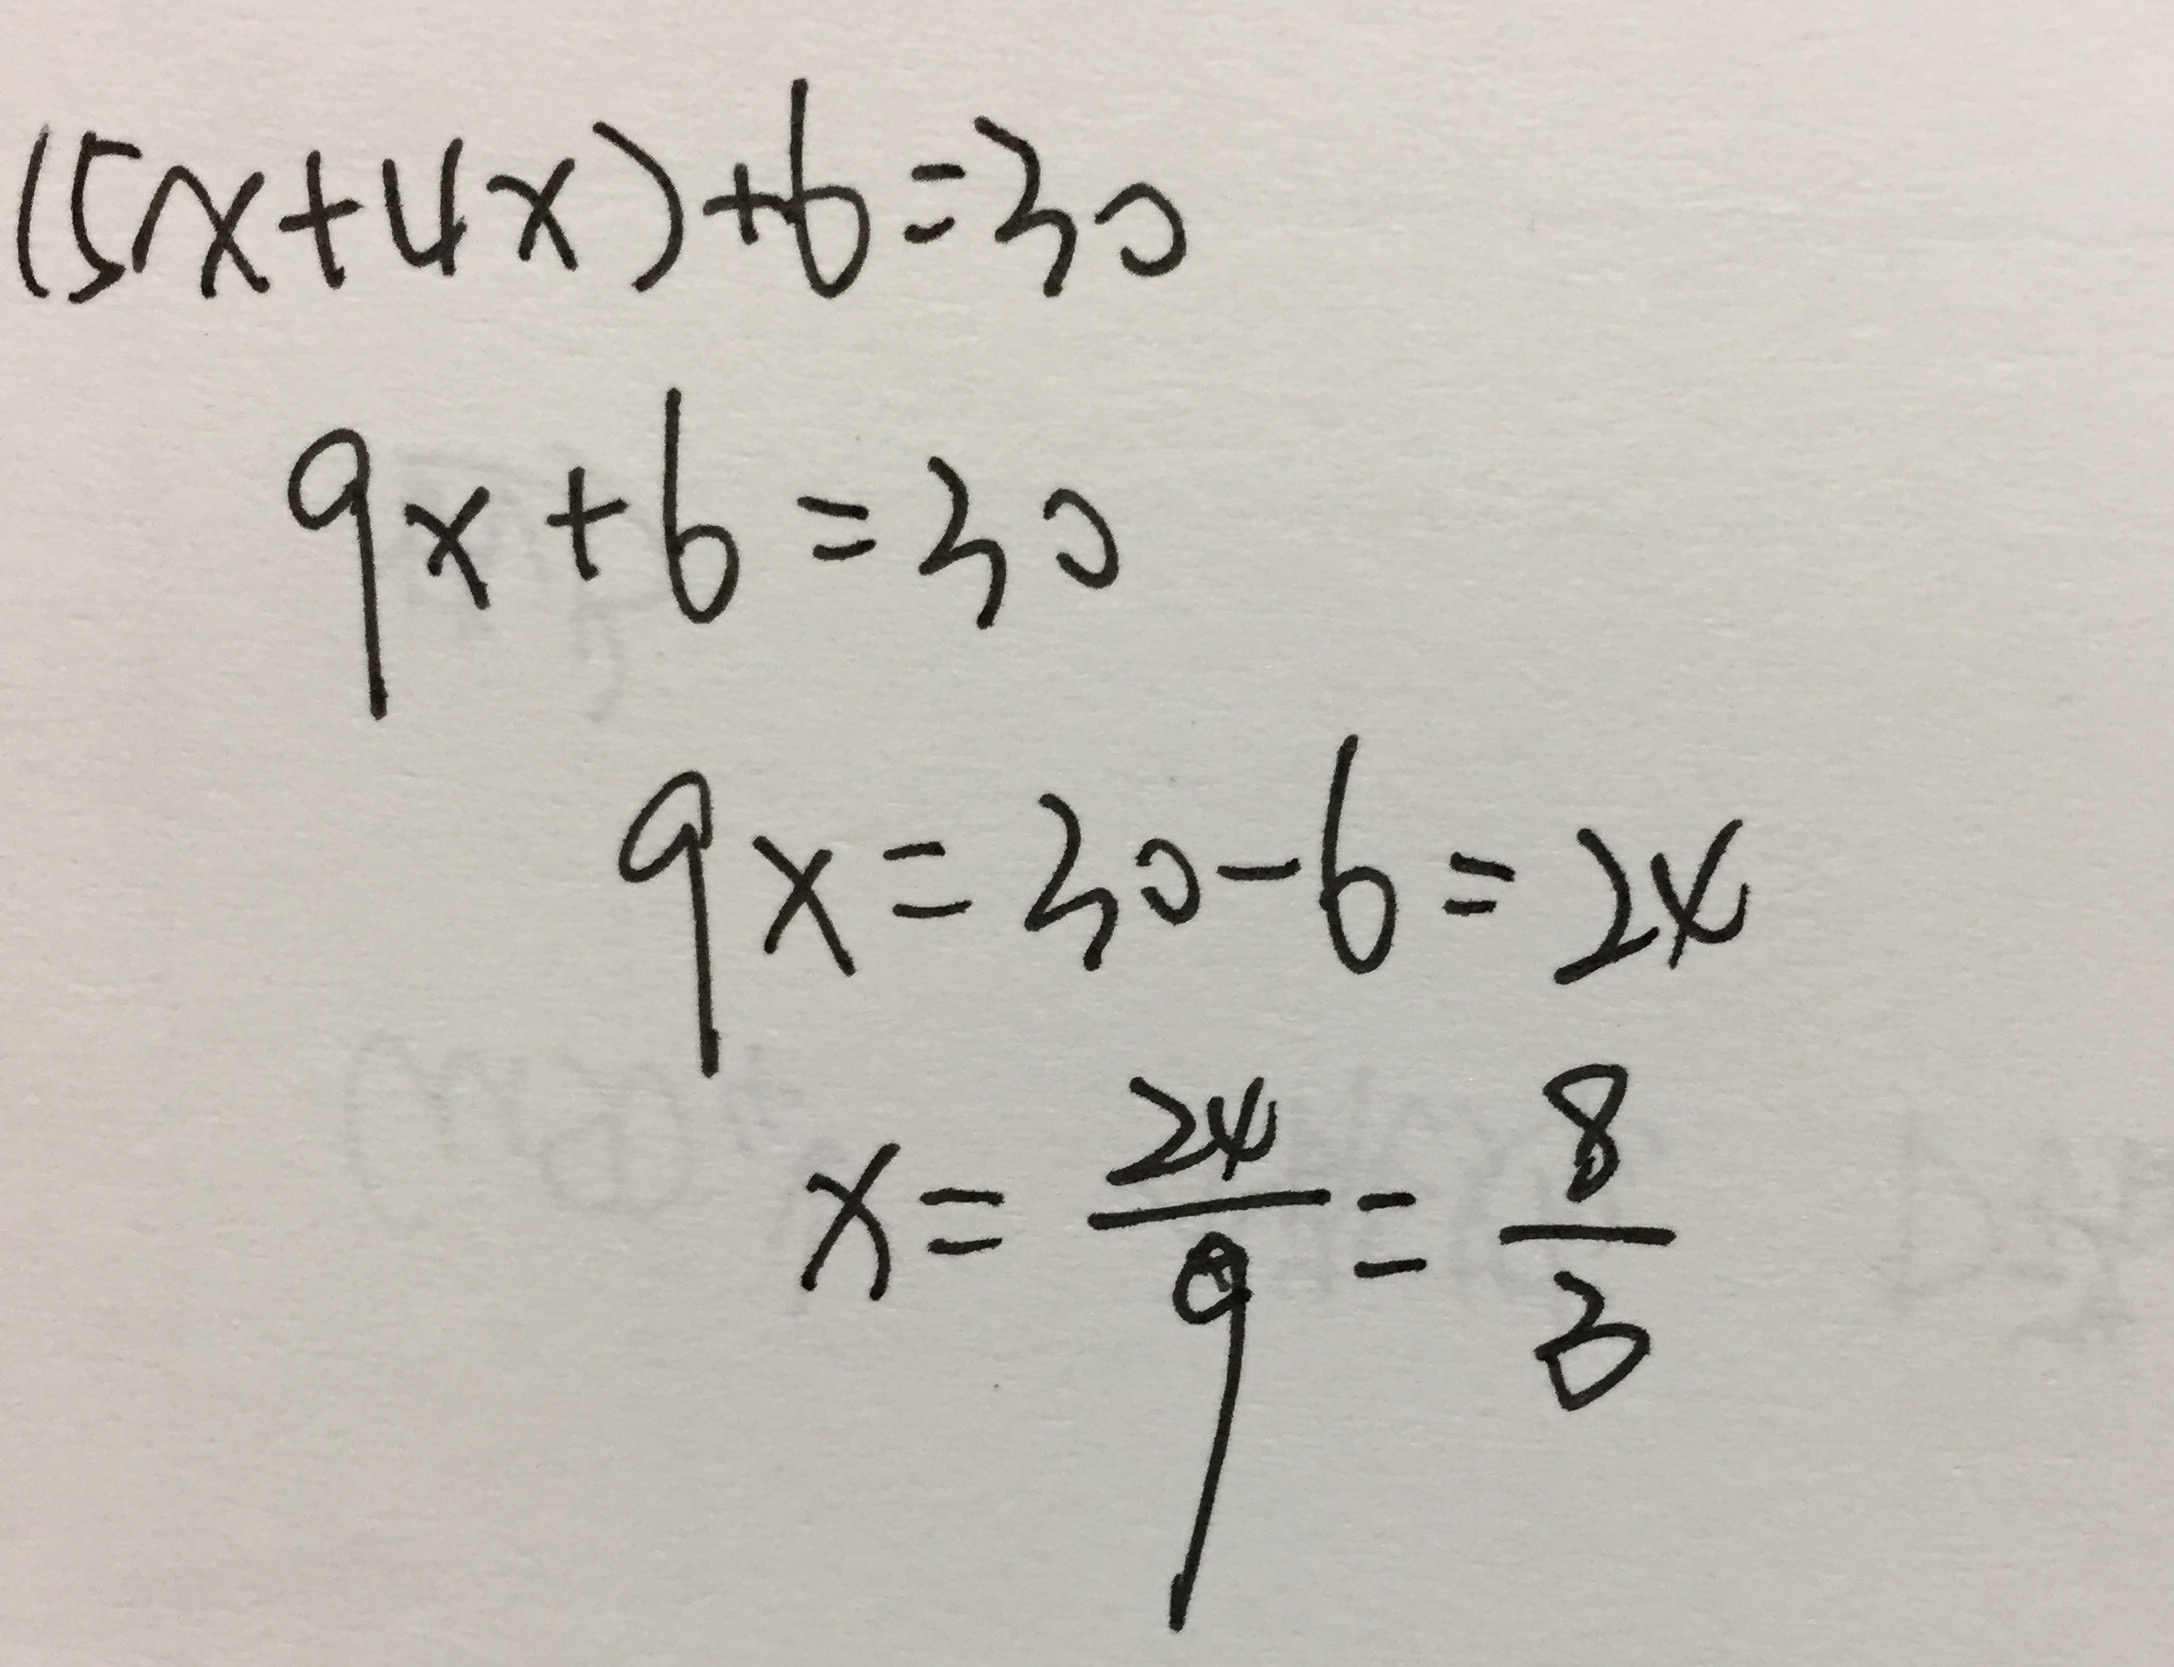 (5x+4x)+6=30
9x+6=30
9x=30-6=24
x=24/9=8/3